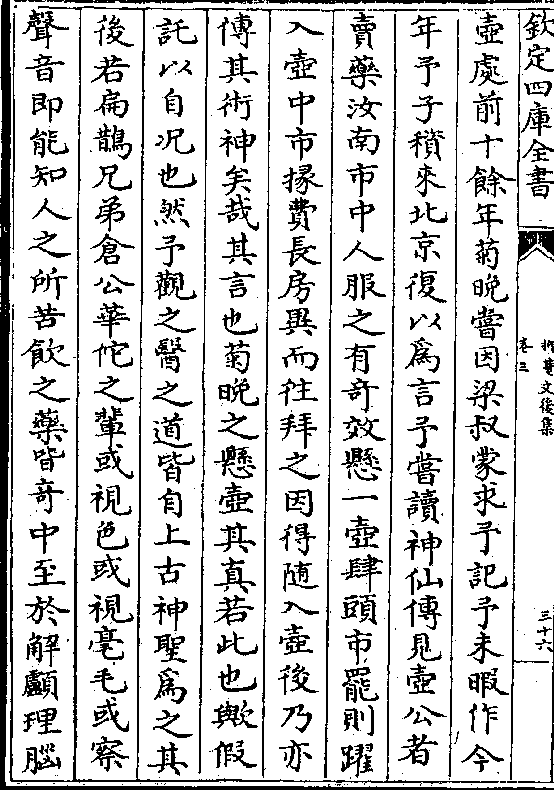 欽定四庫全書
卷三
文後集
三十六
壺處前十餘年菊晚嘗因梁叔蒙求予記予未暇作今
年予子積來北京復以為言予嘗讀神仙傳見壺公者
賣藥汝南市中人服之有竒效懸一壺肆頭市罷則躍
入壺中市掾費長房異而往拜之因得隨入壺後乃亦
傳其術神矣哉其言也菊晚之懸壺其真若此也歟假
託以自况也然予觀之醫之道皆自上古神聖為之其
後若扁鵲兄弟倉公華佗之輩或視色或視毫毛或察
聲音即能知人之所苦飲之藥皆竒中至於解顱理腦